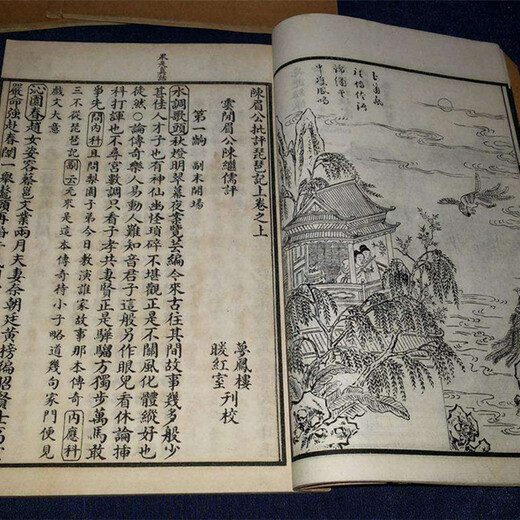 陳眉公批評琵琶記上卷之上
雲閒眉公陳繼儒評
夢鳳樓
暖紅室
刊校
第一齣 副末開場
水調歌頭秋燈明翠幕夜案覽芸編今來古往其間故事幾多般少
甚佳人才子也有神仙幽怪瑣碎不堪觀正是不關風化體縱好也
徒然○論傳奇樂人易動人難知音君子這般另作眼兒看休論插
科打諢也不尋宮數調只看子孝共妻賢正是驊騮方獨步萬馬敢
爭先問內科且問梨園子弟今日敎演誰家故事那本傳奇內應科
三不從琵琶記副云元來是這本傳奇待小子略道幾句家門便見
戲文大意
沁園春趙女姿容蔡邕文業兩月夫妻奈朝廷黃榜徧招賢士高
嚴命強赴春闈一舉鰲頭再婚